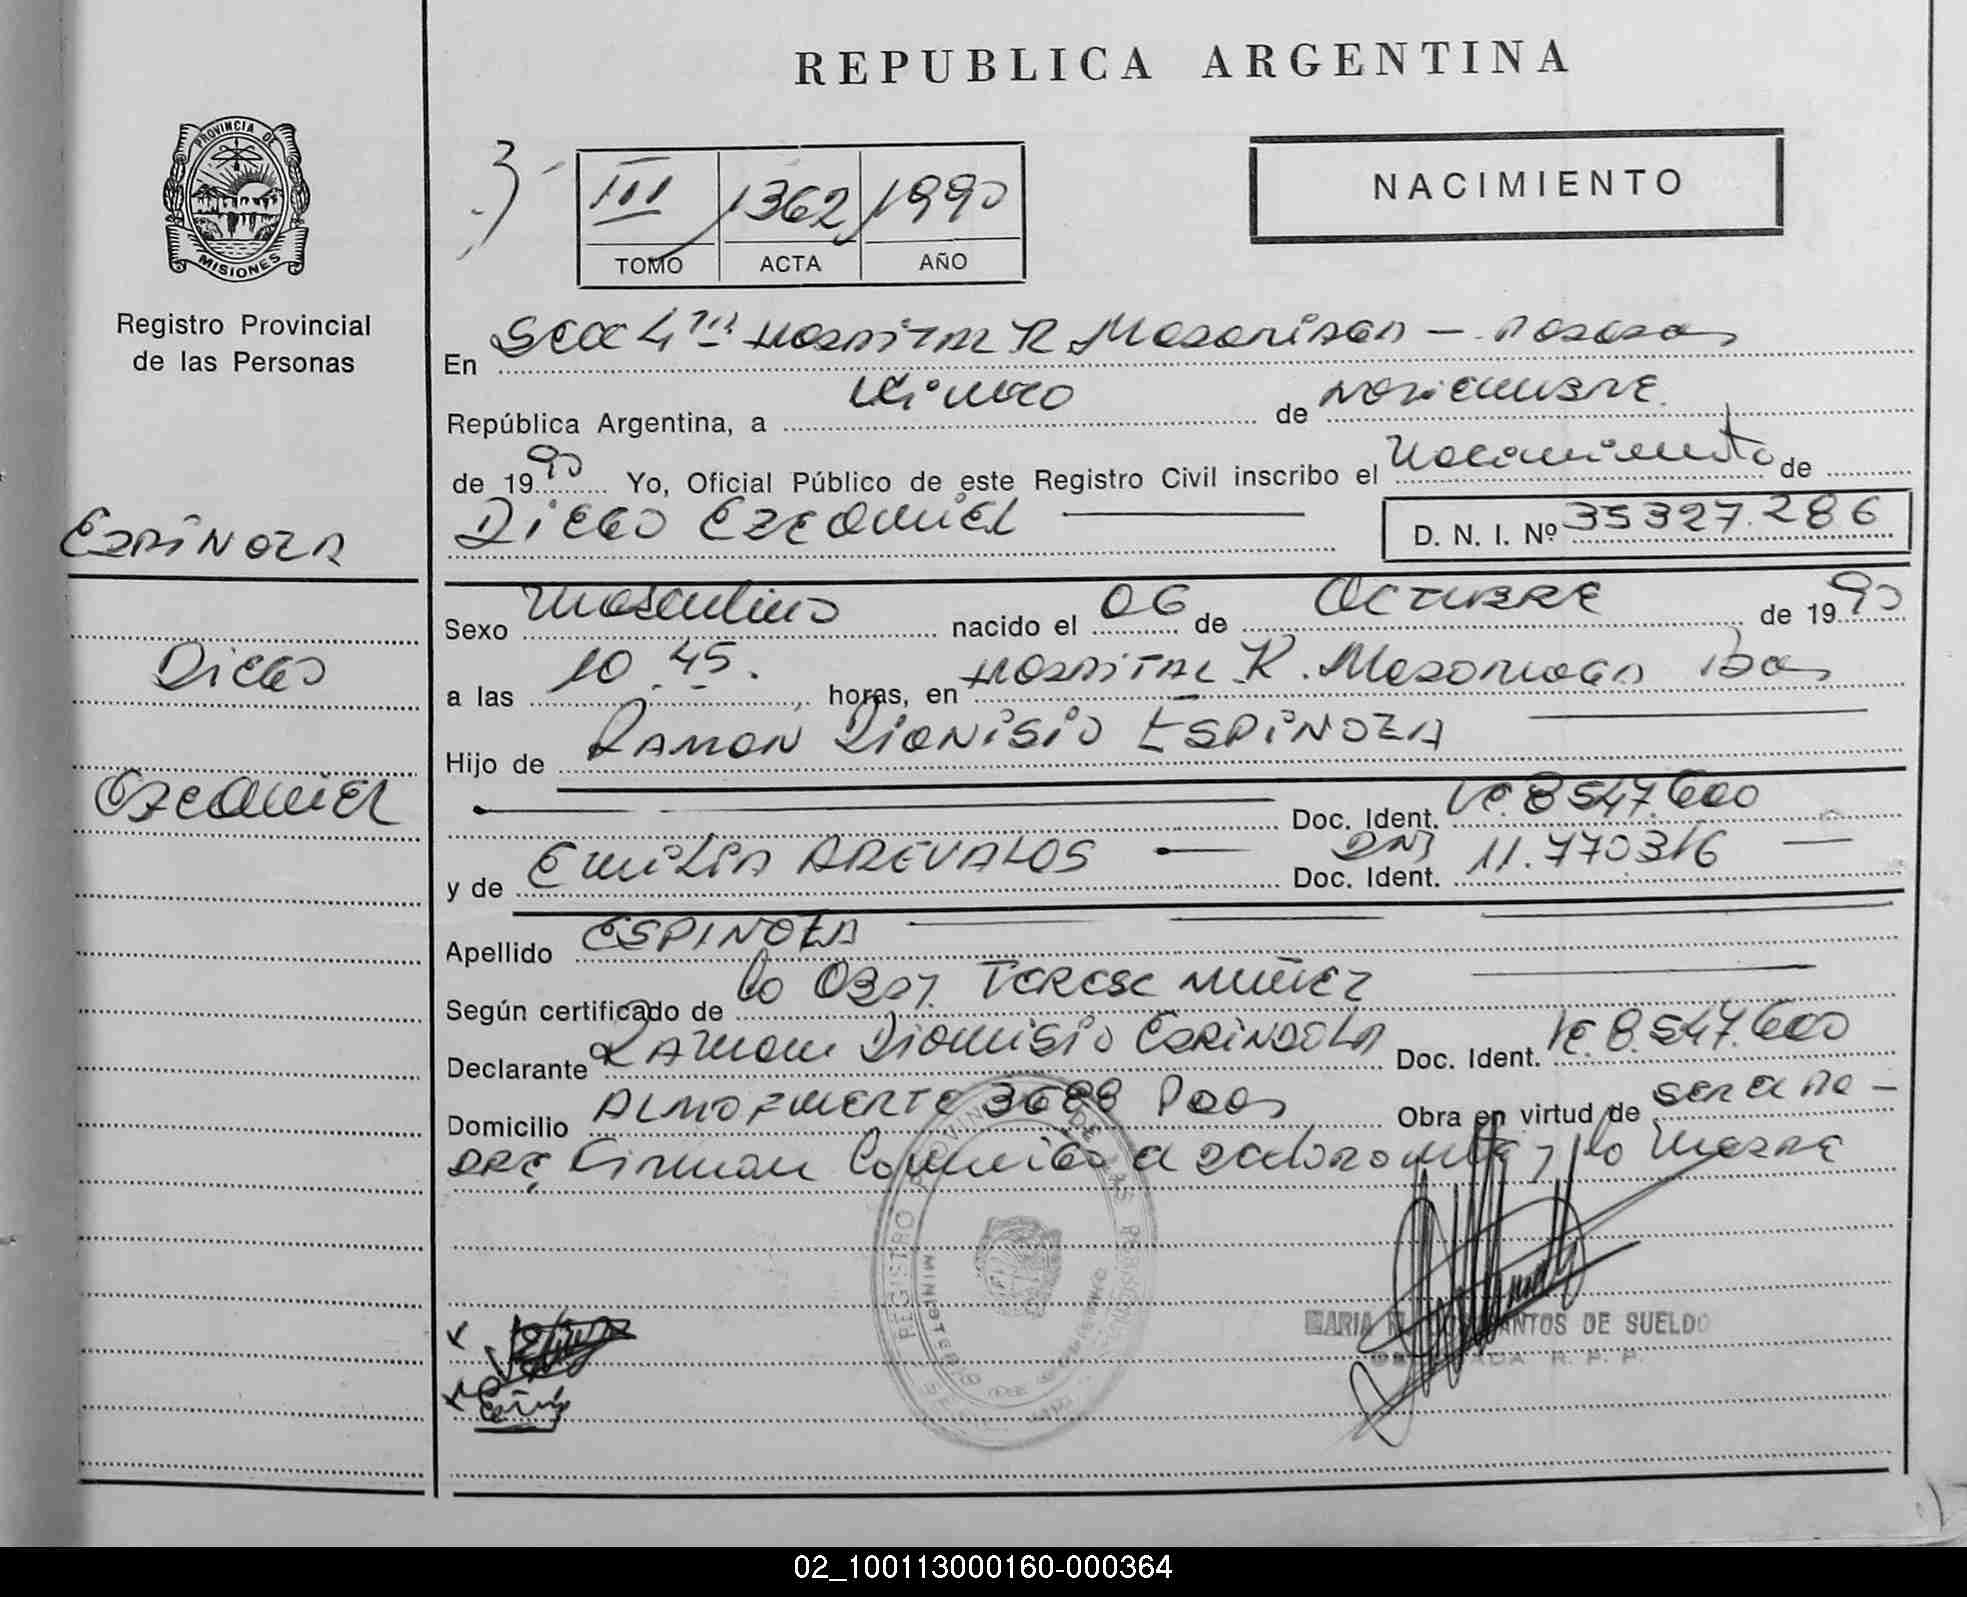 REPUBLICA ARGENTINA
PROVINCIA DE
MISIONES
Registro Provincial
de las Personas
III 1362 1990
TOMO ACTA AÑO
NACIMIENTO
En Secc 4ta Hospital R Madariaga - Posadas
República Argentina, a cinco de noviembre
de 1990 Yo, Oficial Público de este Registro Civil inscribo el Nacimiento de
Espinoza
Diego Ezequiel D. N. I. Nº 35327.286
Sexo Masculino nacido el 06 de Octubre de 1990
Diego
a las 10.45. horas, en Hospital R. Madariaga Pdas
Hijo de Ramon Dionisio Espinoza
Ezequiel
Doc. Ident. LE. 8547.600
y de Emilia AREVALOS DNI Doc. Ident. 11.770316
Apellido ESPINOZA
Según certificado de la Obst. Teresa Nuñez
Declarante Ramon Dionisio Doc. Ident. LE. 8.547.600
Domicilio Almafuerte 3688 Pdas Obra en virtud de ser el Pa-
dre Firman conmigo el declarante y la Madre
REGISTRO PROVINCIAL DE LAS PERSONAS
MARIA SANTOS DE SUELDO
R. P. P.
02_100113000160-000364